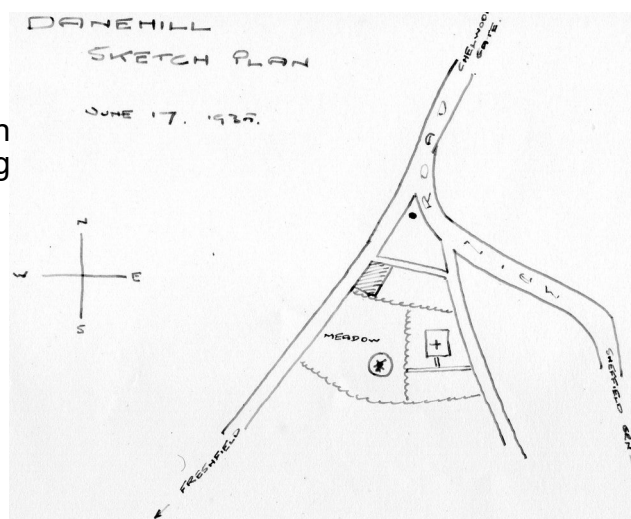 DANEHILL
SKETCH PLAN
JUNE 17. 193
n
g
CHELWOOD
GATE.
ROAD
N
W E
S
MEADOW
SHEFFIELD GRN
FRESHFIELD